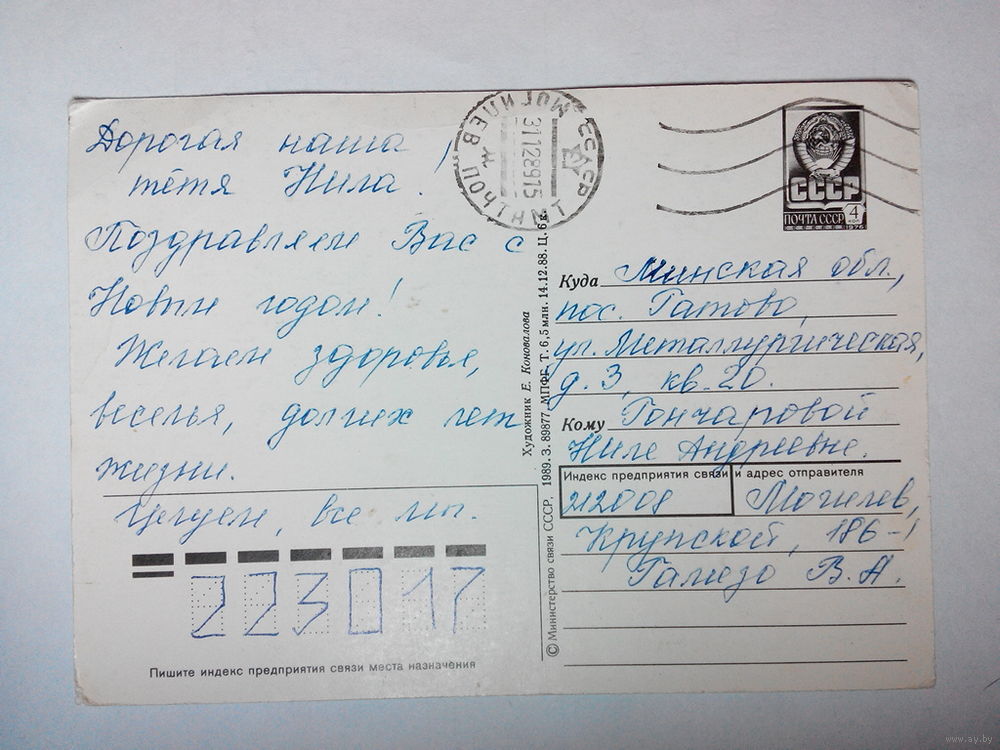 Дорогая наша
тётя Нила!
Поздравляем Вас с
Новым годом!
Желаем здоровья,
веселья, долгих лет
жизни.
Целуем, все мы.
223017
Пишите индекс предприятия связи места назначения
© Министерство связи СССР, 1989. З. 89877. МПФГ. Т. 6,5 млн. 14.12.88. Ц. 6 к.
Художник Е. Коновалова
МОГИЛЕВ ПОЧТАМТ
СССР
31128915
СССР
ПОЧТА СССР
4
КОП
1976
Куда Минская обл.,
пос. Гатово,
ул. Металлургическая,
д. 3, кв. 20.
Кому Гончаровой
Ниле Андреевне.
Индекс предприятия связи и адрес отправителя
212008 Могилев,
Крупской, 186-1
В. А.
www.ay.by